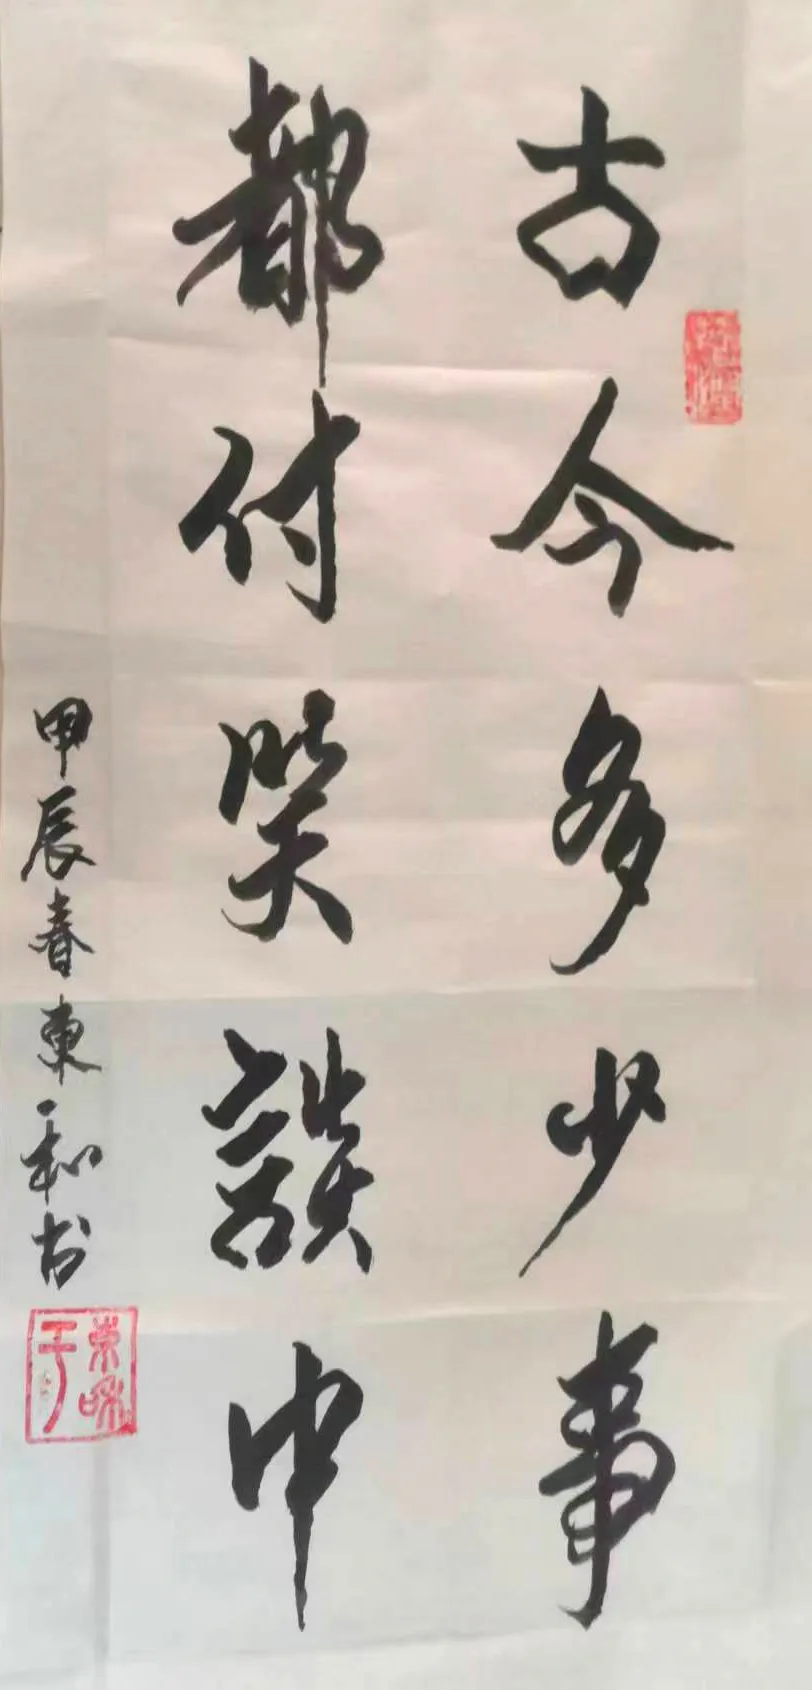 古今多少事
都付笑談中
甲辰春東和书
东和
于